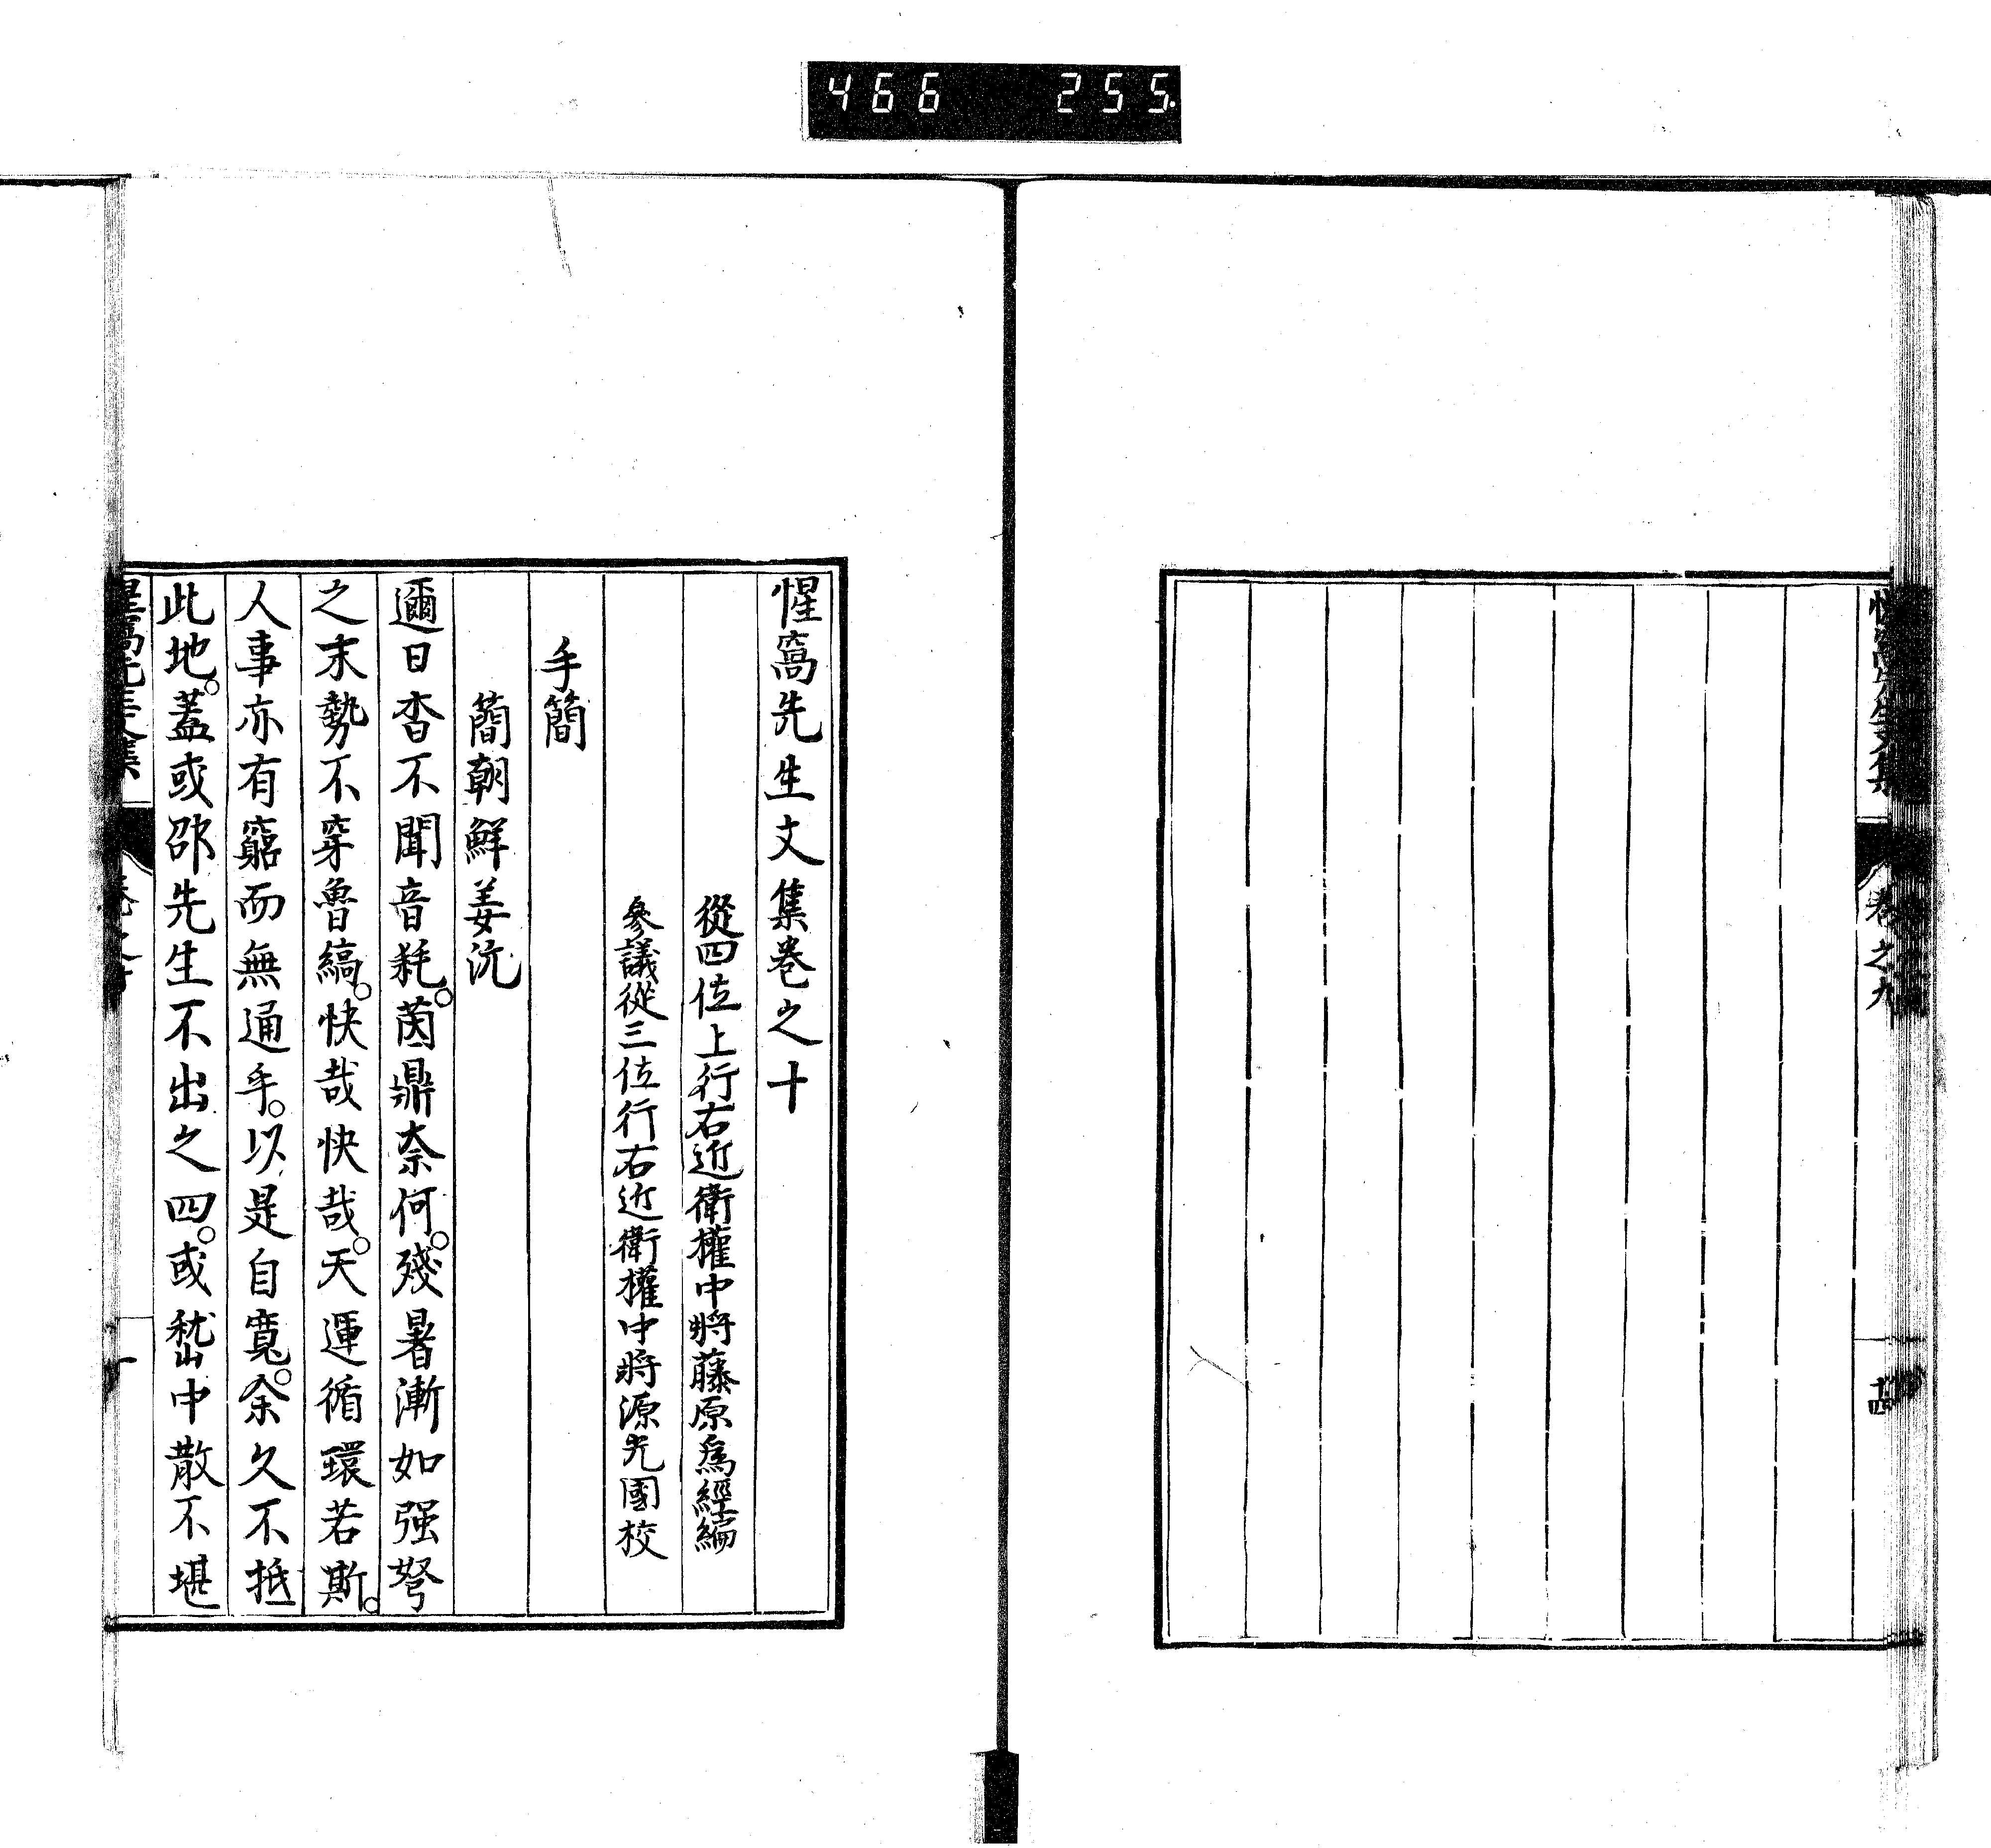 466 255
惺窩先生文集
卷之九
十四
惺窩先生文集卷之十
從四位上行右近衛權中將藤原爲經編
參議從三位行右近衛權中將源光國校
手簡
簡朝鮮姜沆
邇日杳不聞音耗。茵鼎奈何。殘暑漸如强弩
之末勢不穿魯縞。快哉快哉。天運循環若斯。
人事亦有窮而無通乎。以是自寬。余久不抵
此地。蓋或邵先生不出之四。或嵇中散不堪
惺窩先生文集
卷之十
一